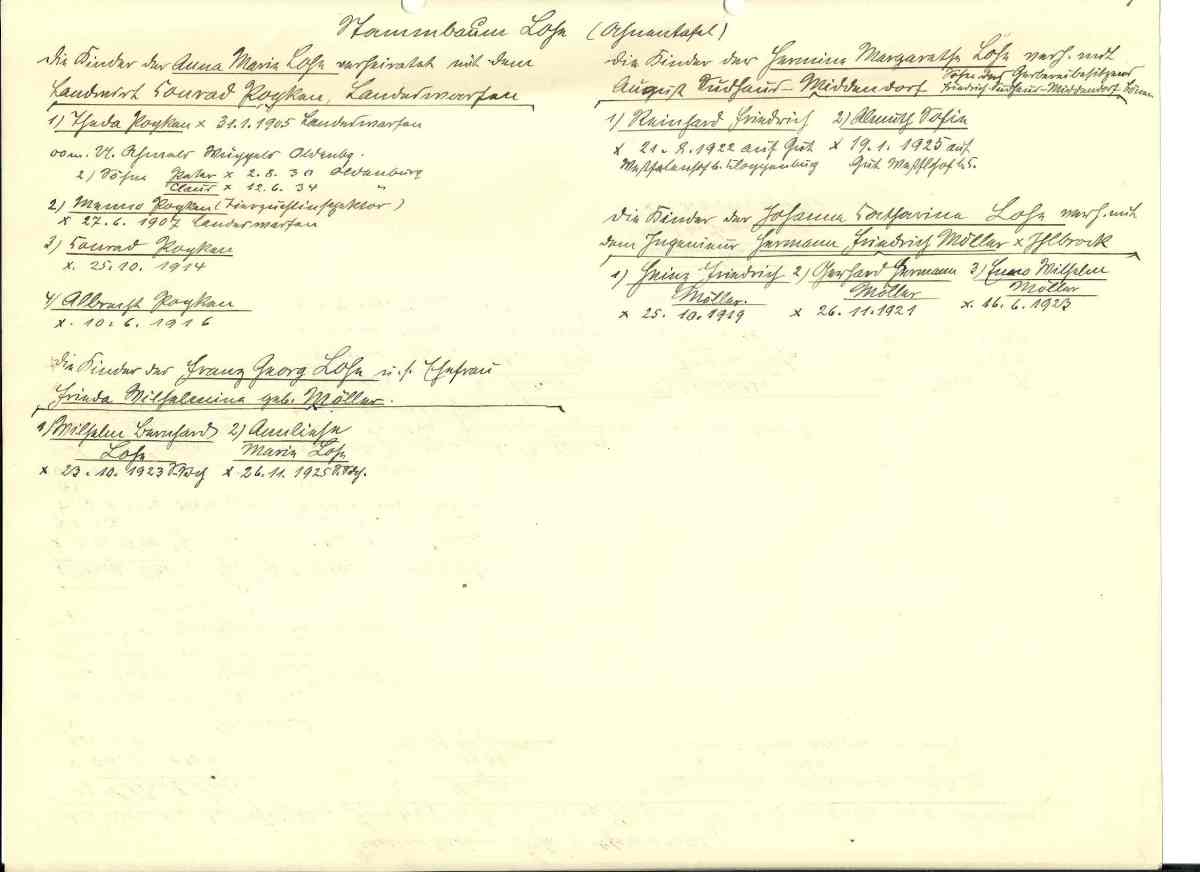 Stammbaum Lohe (Ahnentafel)
Die Kinder der Anna Marie Lohe verheiratet mit dem
Landwirt Conrad Poyken, Landeswarfen
1) Theda Poyken x 31.1.1905 Landeswarfen
Oldenbg.
2) Söhne Peter x 2.8.30 Oldenburg
Claus x 12.6.34 "
2) Menno Poyken (Tierzuchtinspektor)
x 27.6.1907 Landeswarfen
3) Conrad Poyken
x. 25.10.1914
4) Albrecht Poyken
x. 10.6.1916
Die Kinder des Franz Georg Lohe u. s. Ehefrau
Frieda Wilhelmina geb. Möller.
1) Wilhelm Bernhard 2) Annliese
Lohe Marie Lohe
x 23.10.1923 x 26.11.1925
Die Kinder der Hermine Margarethe Lohe verh. mit
August Sudhaus-Middendorf Sohn des Gerbereibesitzers
Friedrich Sudhaus-Middendorf
1) Reinhard Friedrich 2) Almuth Sofie
x 21.2.1922 auf Gut x 19.1.1925 auf
Westfalenhof b. Cloppenburg Gut
Die Kinder der Johanna Catharina Lohe verh. mit
dem Ingenieur Hermann Friedrich Möller x Ihlbrock
1) Heinz Friedrich 2) Gerhard Hermann 3) Enno Wilhelm
Möller. Möller Möller
x 25.10.1919 x 26.11.1921 x. 16.6.1923